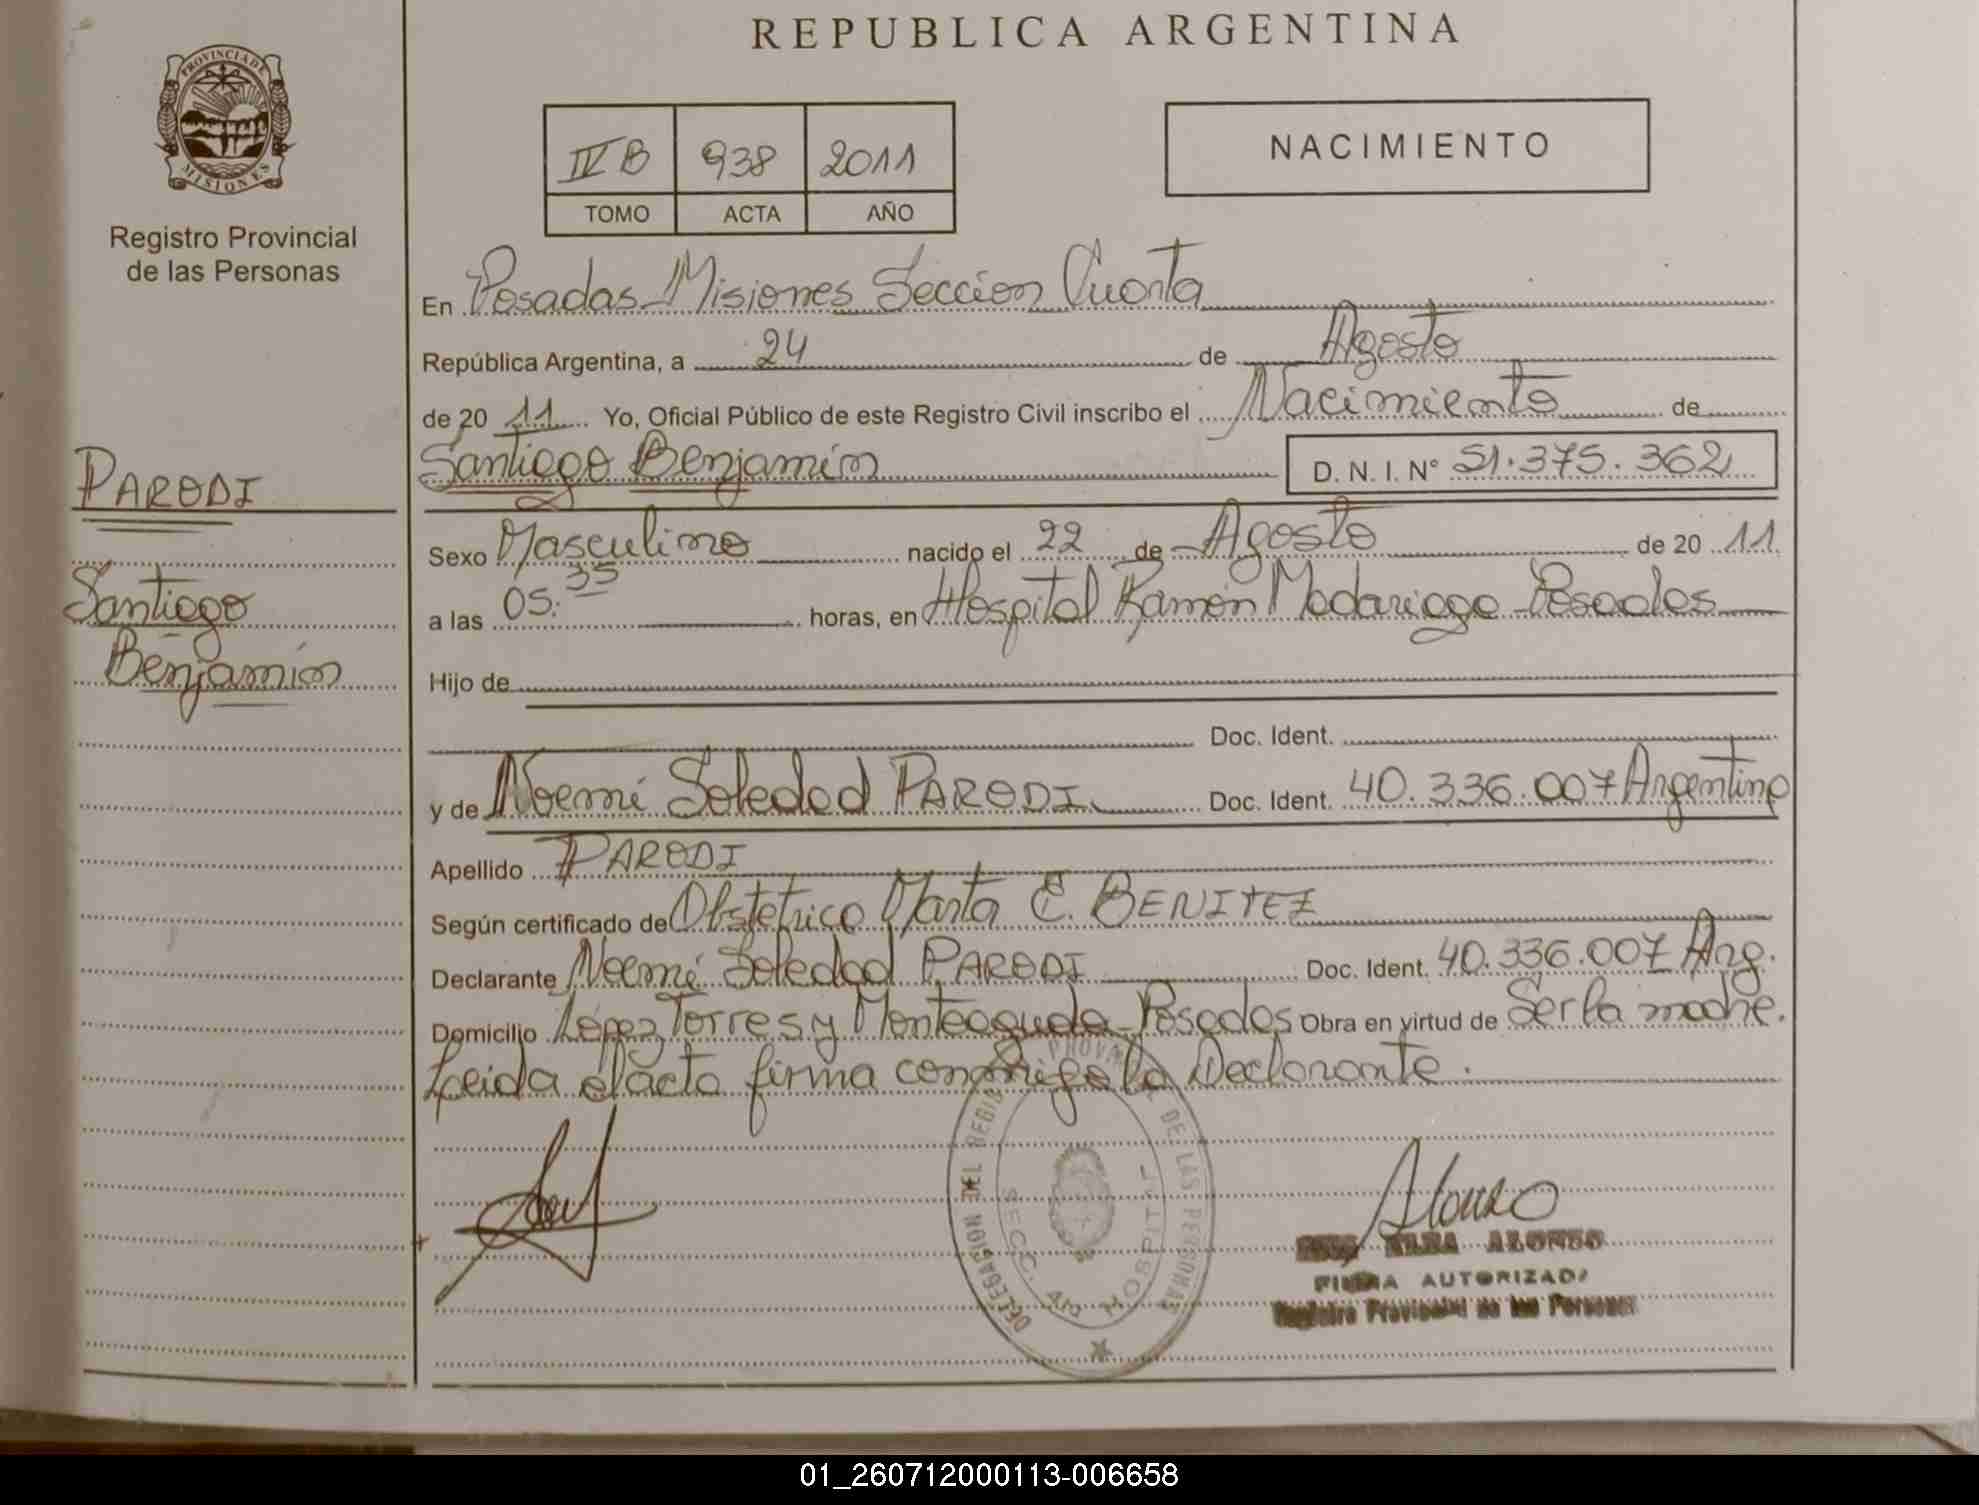 REPUBLICA ARGENTINA
PROVINCIA DE
MISIONES
Registro Provincial
de las Personas
IV B 938 2011
TOMO ACTA AÑO
NACIMIENTO
En Posadas Misiones Sección Cuarta
República Argentina, a 24 de Agosto
de 20 11 Yo, Oficial Público de este Registro Civil inscribo el Nacimiento de
Santiago Benjamín D. N. I. N° 51.375.362
PARODI
Santiago
Benjamín
Sexo Masculino nacido el 22 de Agosto de 20 11
a las 05:35 horas, en Hospital Ramón Madariaga Posadas
Hijo de
Doc. Ident.
y de Noemí Soledad PARODI Doc. Ident. 40.336.007 Argentina
Apellido PARODI
Según certificado de Obstetrica Marta E. BENITEZ
Declarante Noemí Soledad PARODI Doc. Ident. 40.336.007 Arg.
Domicilio López Torres y Monteagudo Posadas Obra en virtud de Ser la madre.
Leida el acta firma conmigo la Declarante.
DELEGACION DEL REGISTRO PROVINCIAL DE LAS PERSONAS
SECC. 4ta HOSPITAL
Alonso
ELBA ALONSO
FIRMA AUTORIZADA
Registro Provincial de las Personas
01_260712000113-006658